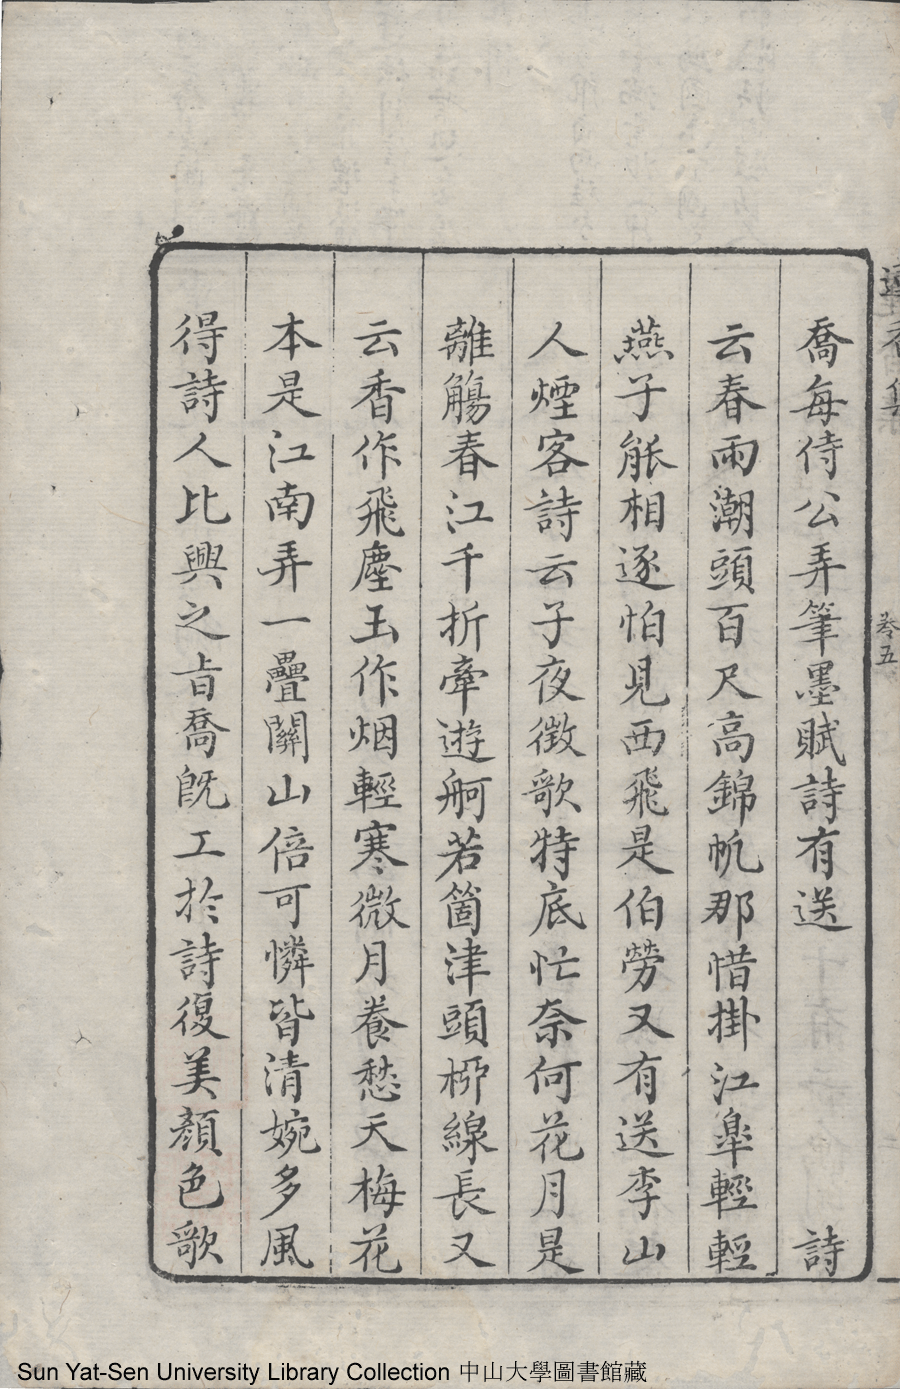 喬每侍公弄筆墨賦詩有送　　　　　詩
云春雨潮頭百尺高錦帆那惜掛江臯輕輕
燕子能相逐怕見西飛是伯勞又有送李山
人煙客詩云子夜徵歌特底忙奈何花月是
離觴春江千折牽遊舸若箇津頭桺線長又
云香作飛塵玉作烟輕寒微月養愁天梅花
本是江南弄一疊關山倍可憐皆清婉多風
得詩人比興之旨喬旣工於詩復美顏色歌
蓮香集
卷五
Sun Yat-Sen University Library Collection 中山大學圖書館藏